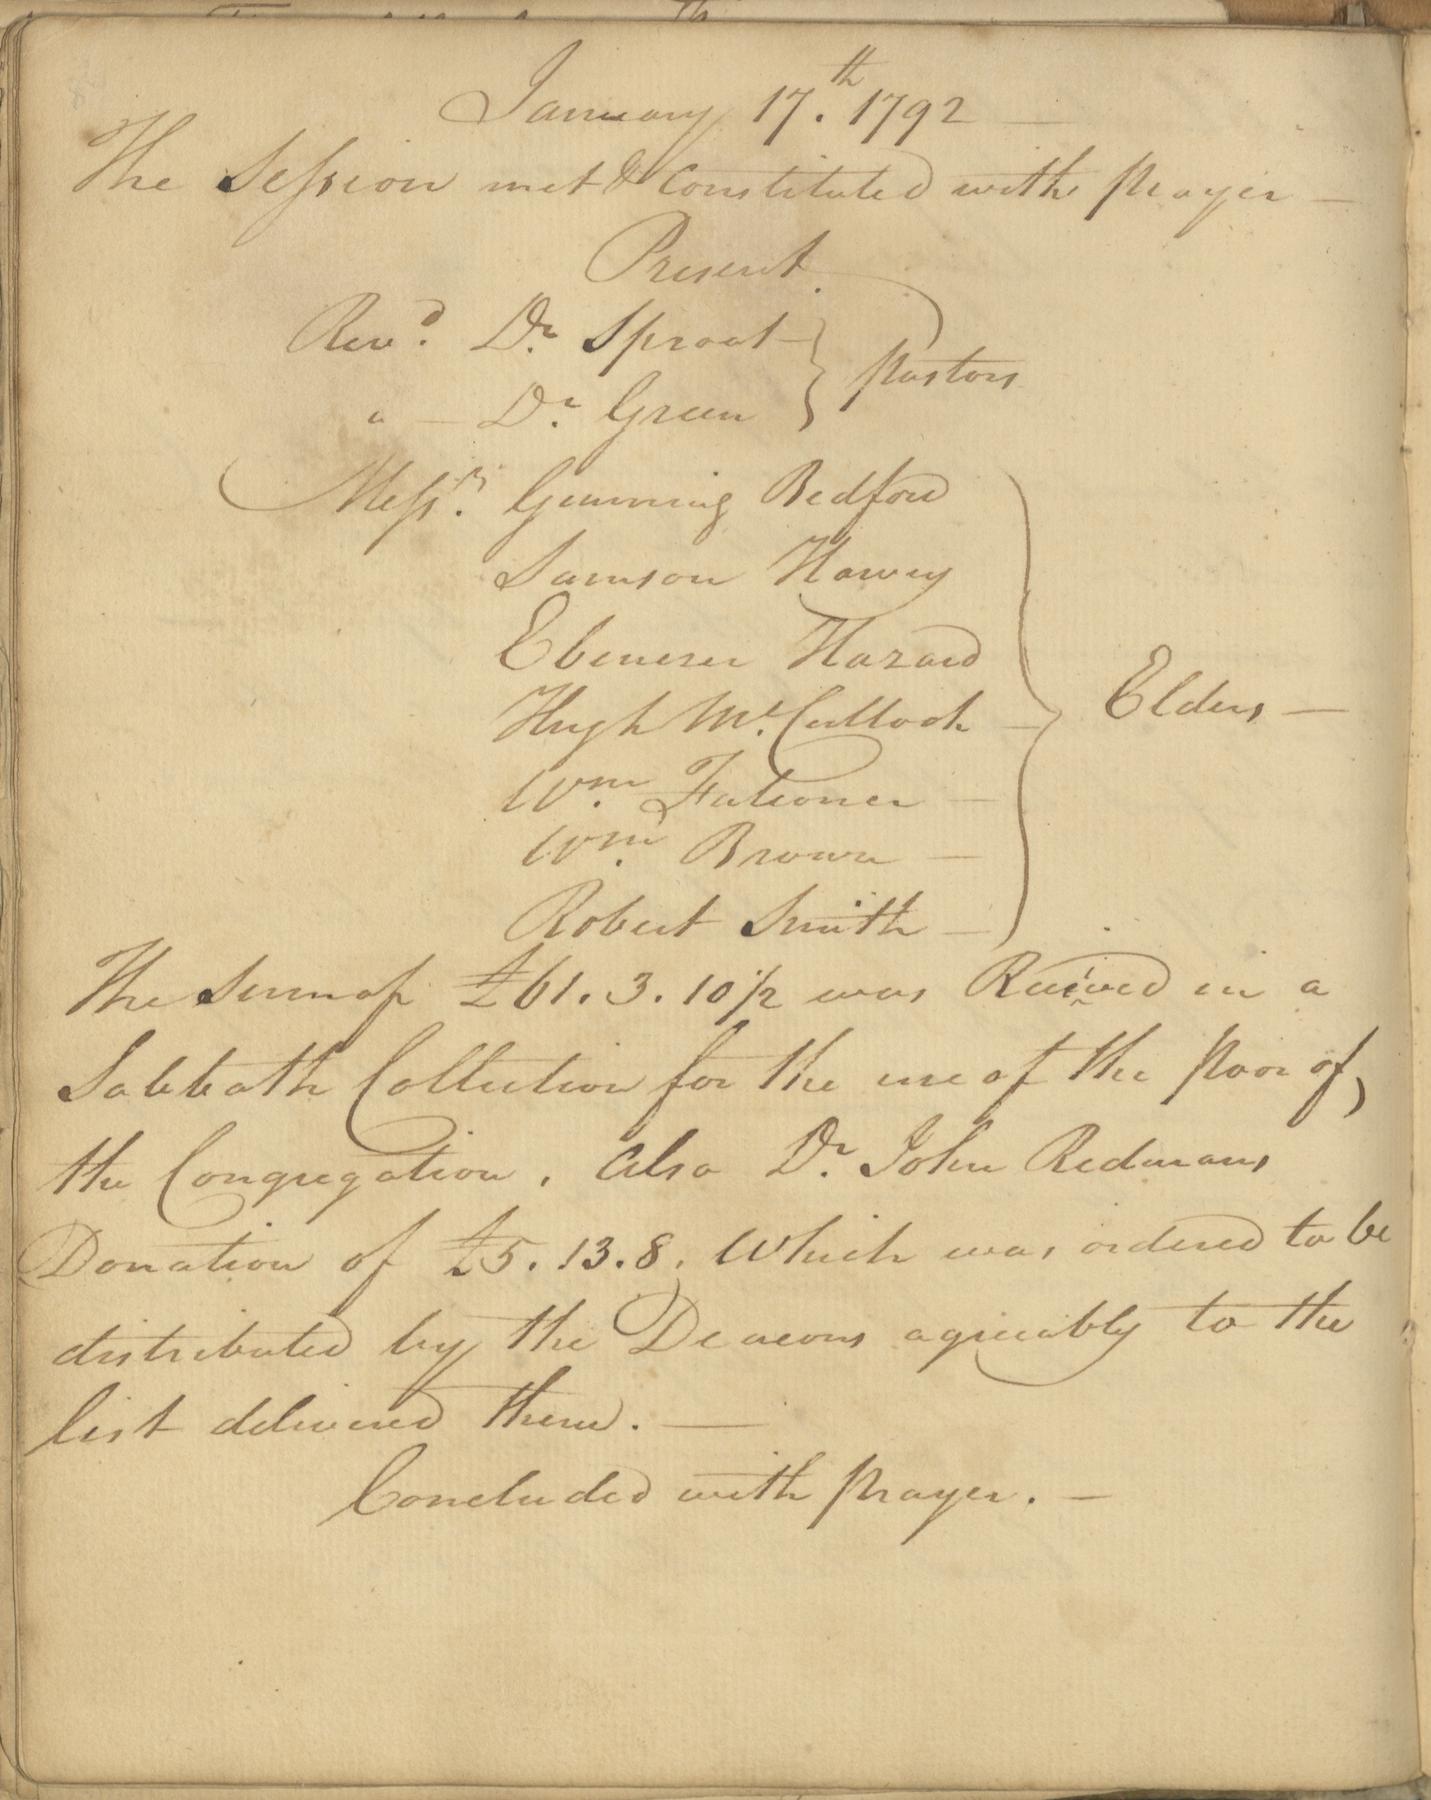 January 17.th 1792 —
The Session met & Constituted with prayer —
Present.
Revd. Dr. Sproat
" — Dr. Green } pastors
Messrs. Gunning Bedford
Samson Harvey
Ebenezer Hazard
Hugh Mc.Culloch — } Elders —
Wm. Falconer —
Wm. Brown —
Robert Smith —
The Sum of £61.3.10½ was Received in a
Sabbath Collection for the use of the poor of,
the Congregation, also Dr. John Redmans
Donation of £5.13.8. Which was ordered to be
distributed by the Deacons agreeably to the
list delivered them. —
Concluded with prayer. —